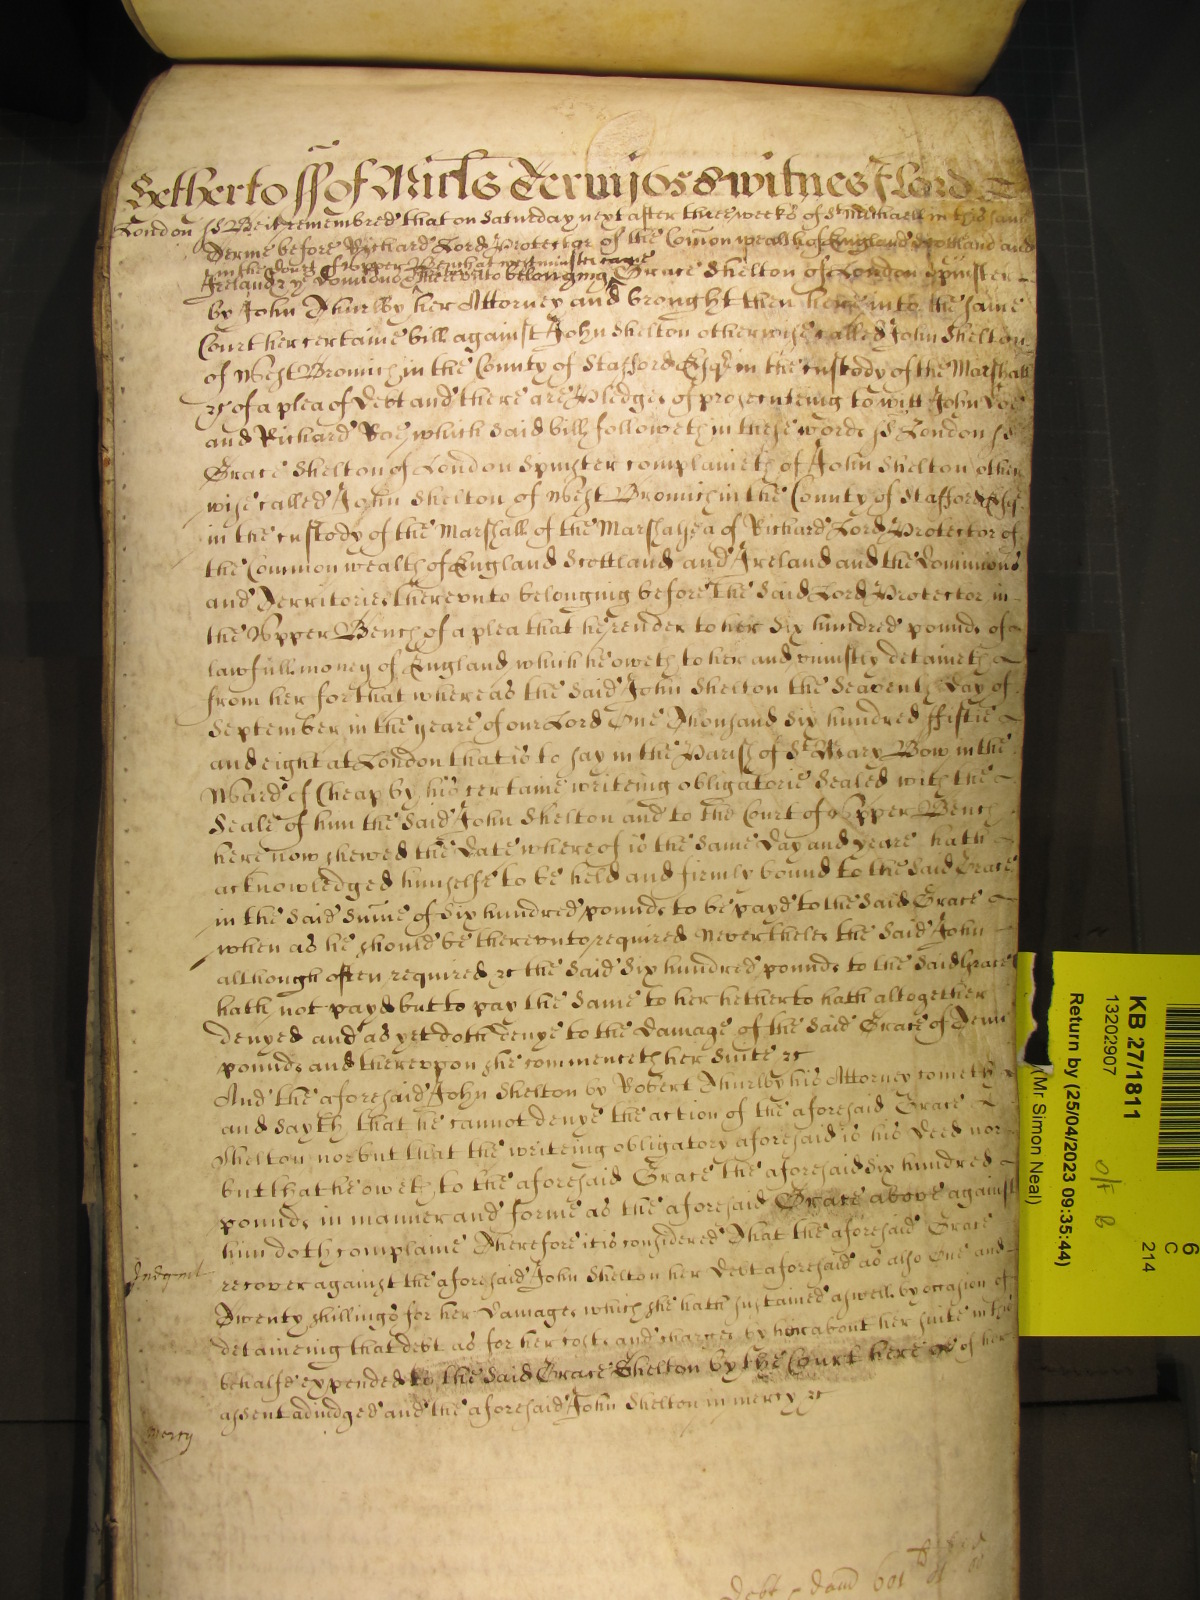 Hetherto ss of Michs Terme 1658 witnes J Lord
London ss Be it remembred that on Saturday next after three weekes of St Michaell in this same
Terme before Richard Lord Protector of the Comon wealth of England Scotland and
in the Court of Upper Bench at westminster came
Ireland & ye Dominions thereunto belonging Grace Shelton of London Spinster
by John Thurlby her Attorney and brought then here into the same
Court her certaine bill against John Shelton otherwise called John Shelton
of West Bromich in the County of Stafford Esqr in the custody of the Marshall
&c of a plea of debt and there are Pledges of prosecuteing to witt John Doe
and Richard Roe which said bill followeth in these words ss London ss
Grace Shelton of London Spinster complaineth of John Shelton other
wise called John Shelton of West Bromich in the County of Stafford Esqr
in the custody of the Marshall of the Marshalsea of Richard Lord Protector of
the Common wealth of England Scottland and Ireland and the Dominions
and Territories thereunto belonging before the said Lord Protector in
the Upper Bench of a plea that he render to her Six hundred pounds of
lawfull money of England which he oweth to her and uniustly detaineth
from her for that whereas the said John Shelton the Seaventh day of
September in the yeare of our Lord One Thousand Six hundred ffiftie
and eight at London that is to say in the Parish of St Mary Bow in the
Ward of Cheap by his certaine writeing obligatorie Sealed with the
Seale of him the said John Shelton and to the Court of Upper Bench
here now shewed the date whereof is the same day and yeare hath
acknowledged himselfe to be held and firmly bound to the said Grace
in the said sume of Six hundred pounds to be payd to the said Grace
when as he should be thereunto required Nevertheles the said John
although often required &c the said Six hundred pounds to the said Grace
hath not payd but to pay the same to her hetherto hath altogether
denyed and as yet doth denye to the damage of the said Grace of Tenn
pounds and thereupon she commenceth her suite &c
And the aforesaid John Shelton by Robert Thurlby his Attorney cometh
and sayth that he cannot denye the action of the aforesaid Grace
Shelton nor but that the writeing obligatory aforesaid is his deed nor
but that he oweth to the aforesaid Grace the aforesaid Six hundred
pounds in manner and forme as the aforesaid Grace above against
him doth complaine Therefore it is considered That the aforesaid Grace
Judgmt
recover against the aforesaid John Shelton her debt aforesaid as also One and
Twenty shillings for her damages which she hath sustained aswell by occasion of
detaineing that debt as for her costs and charges by her about her suite in this
behalfe expended to the said Grace Shelton by the Court here of her
assent adiudged and the aforesaid John Shelton in mercy &c
Mercy
Debt & dam 601
KB 27/1811
13202907
Return by (25/04/2023 09:35:44)
(Mr Simon Neal)
O/F B
6
C
214